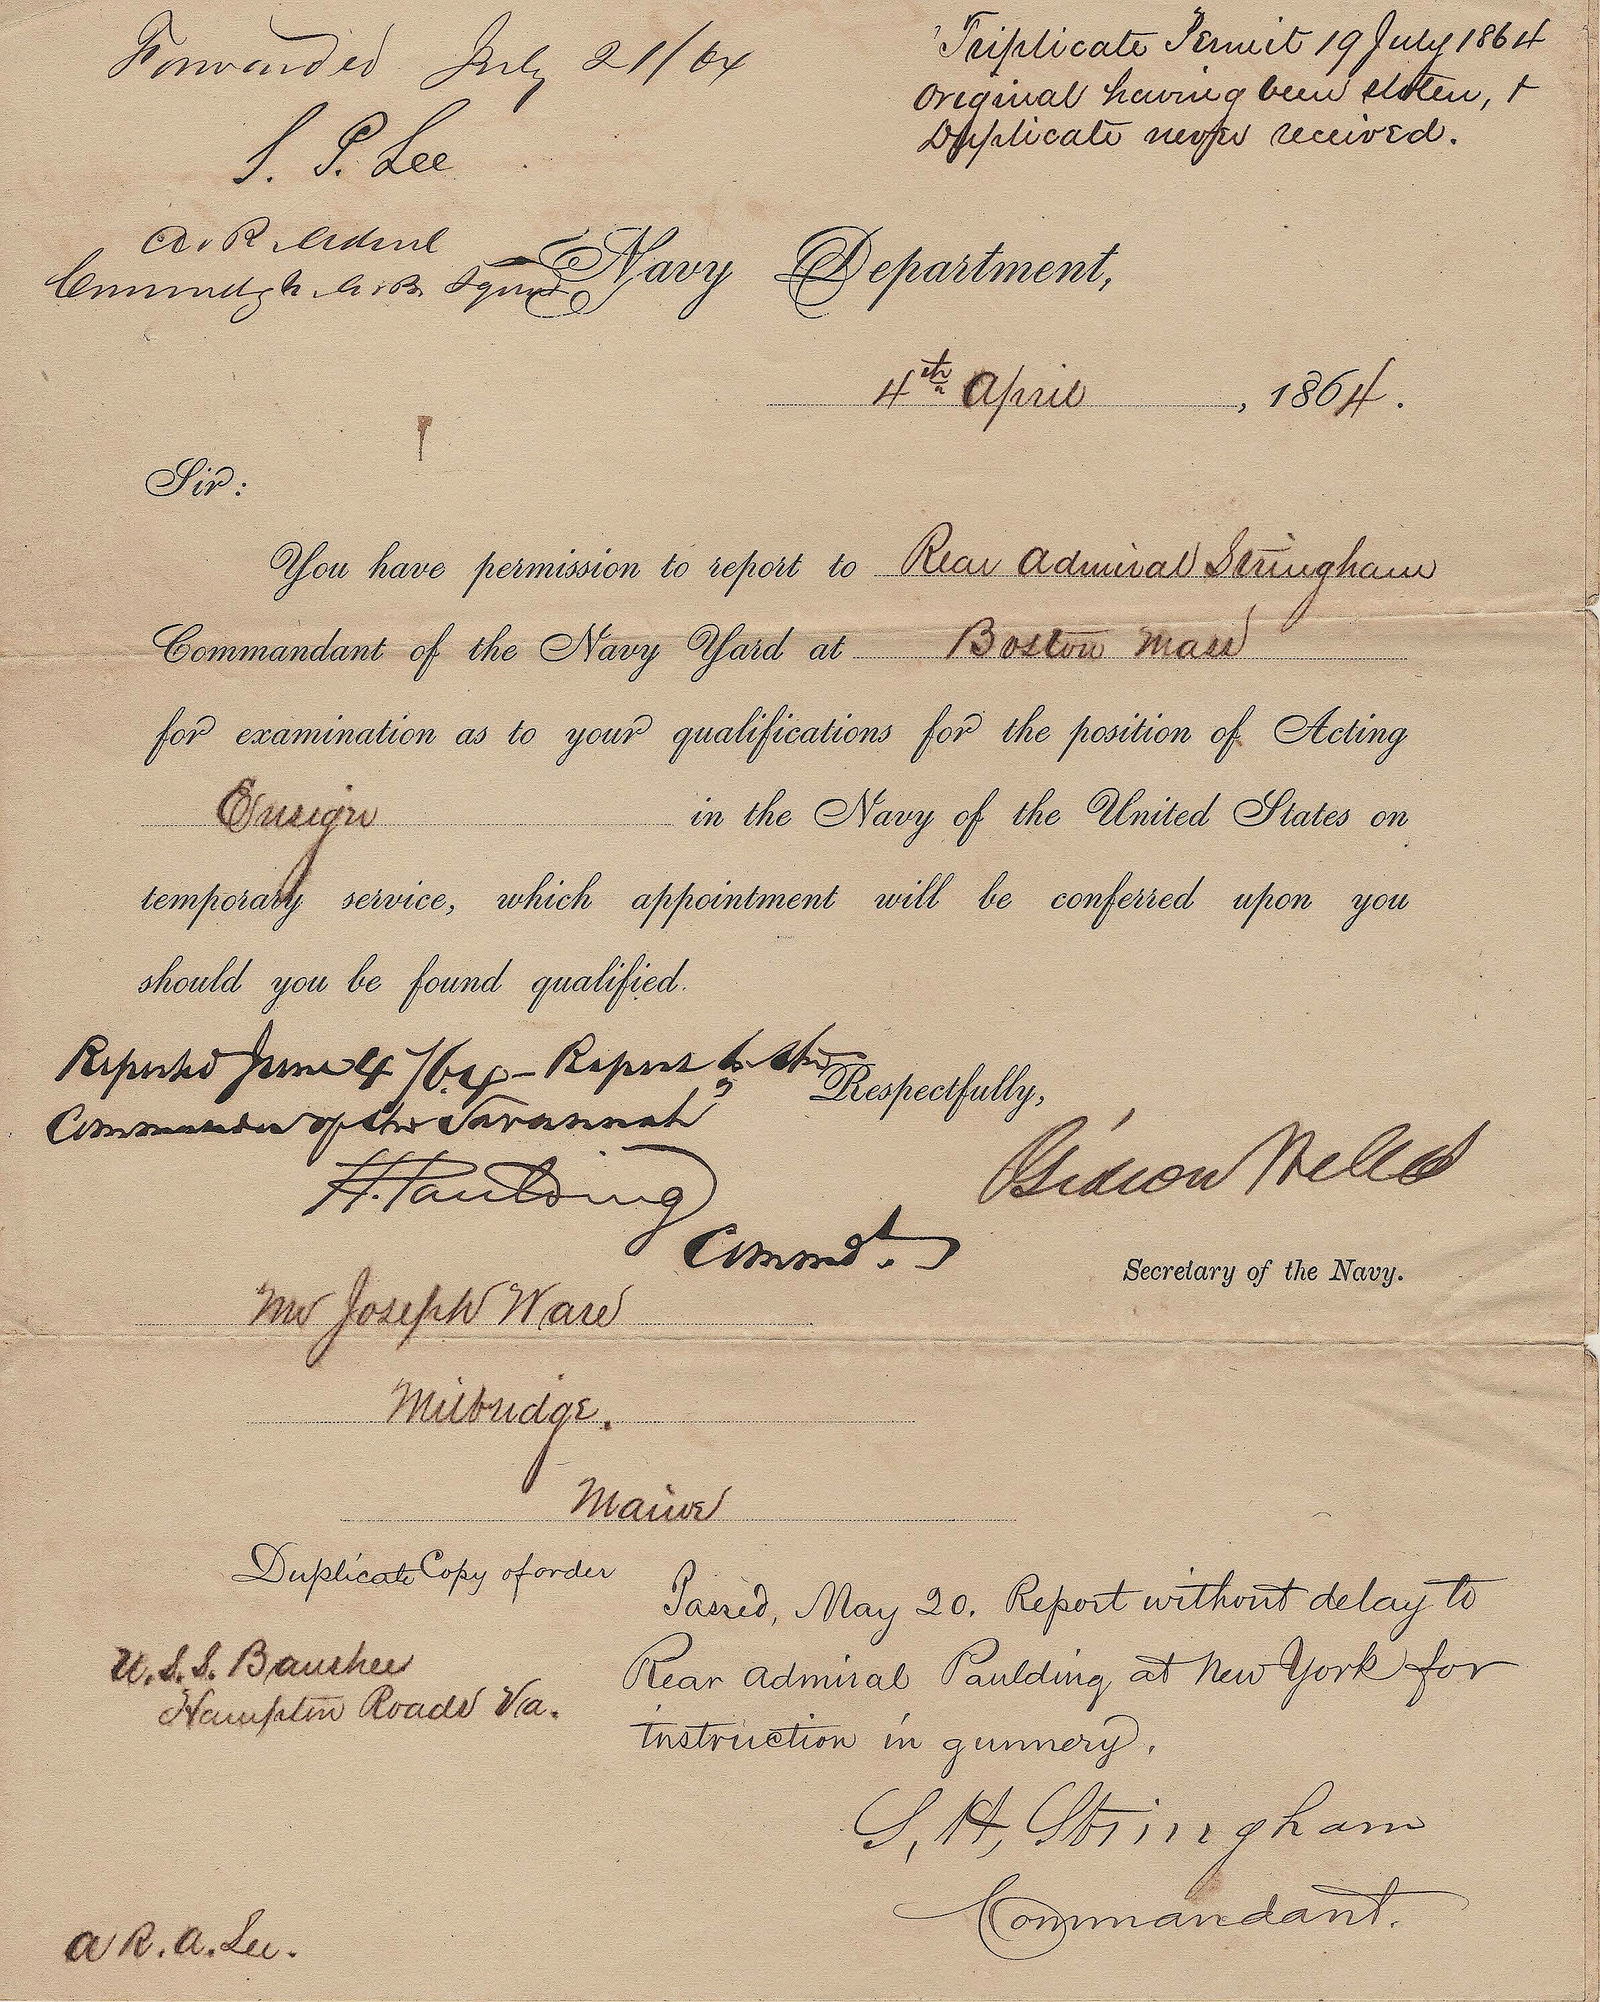 Forwarded July 21/64
S. P. Lee
A. R. Admiral
Commdg N. A. B. Squad
Triplicate Permit 19 July 1864
Original having been stolen, &
Duplicate never received.
Navy Department,
4th April, 1864.
Sir:
You have permission to report to Rear Admiral Stringham
Commandant of the Navy Yard at Boston Mass
for examination as to your qualifications for the position of Acting
Ensign in the Navy of the United States on
temporary service, which appointment will be conferred upon you
should you be found qualified.
Reported June 4/64 - Report to the
Commander of the Savannah
H. Paulding
Commdt.
Respectfully,
Gideon Welles
Secretary of the Navy.
Mr Joseph Ware
Milbridge.
Maine
Duplicate Copy of order
Passed, May 20. Report without delay to
Rear Admiral Paulding at New York for
instruction in gunnery.
S, H, Stringham
Commandant.
U.S.S. Banshee
Hampton Roads Va.
A R. A. Lee.